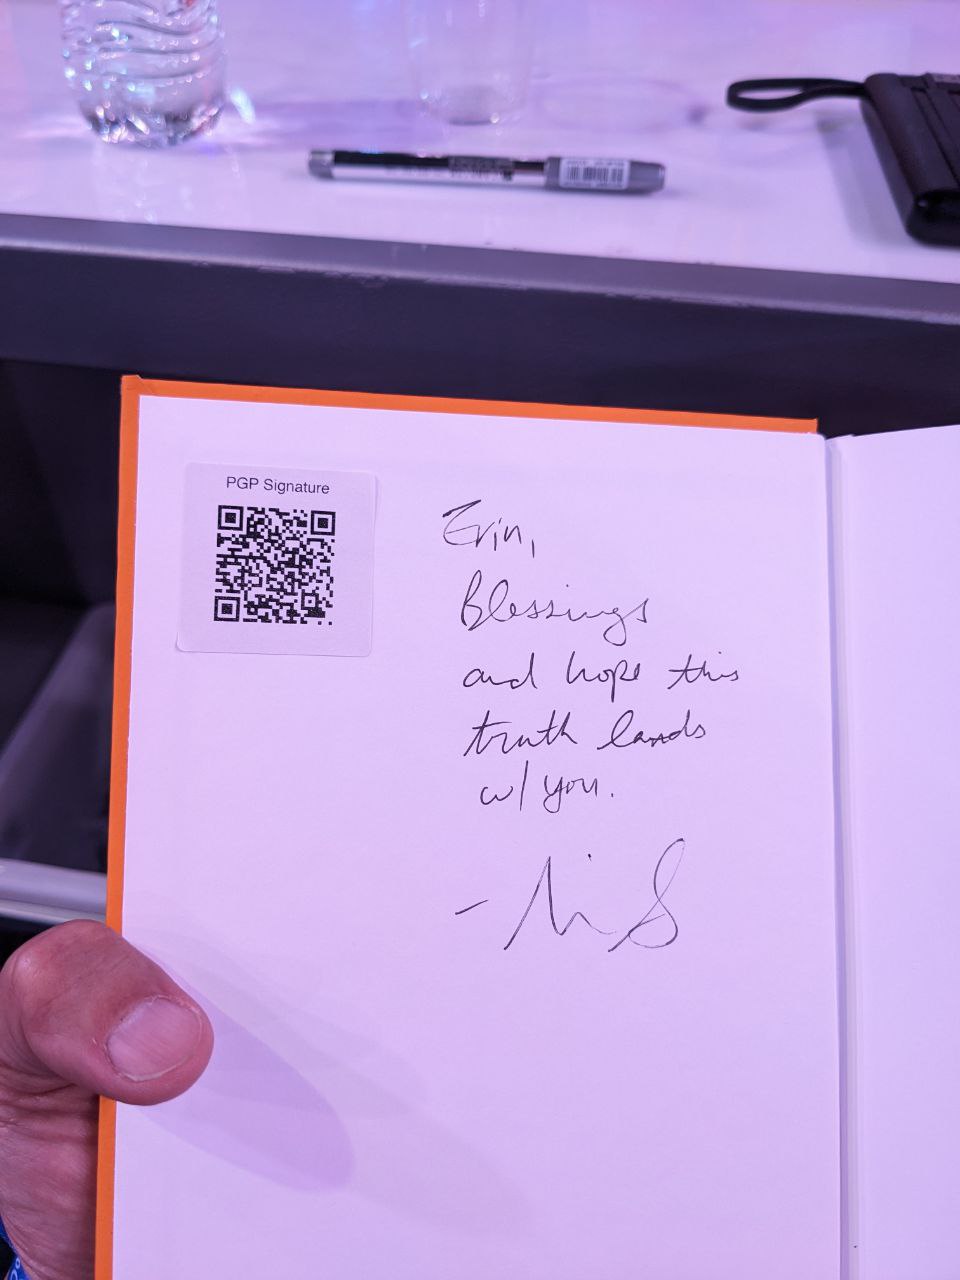 PGP Signature
Erin,
Blessings
and hope this
truth lands
w/ you.